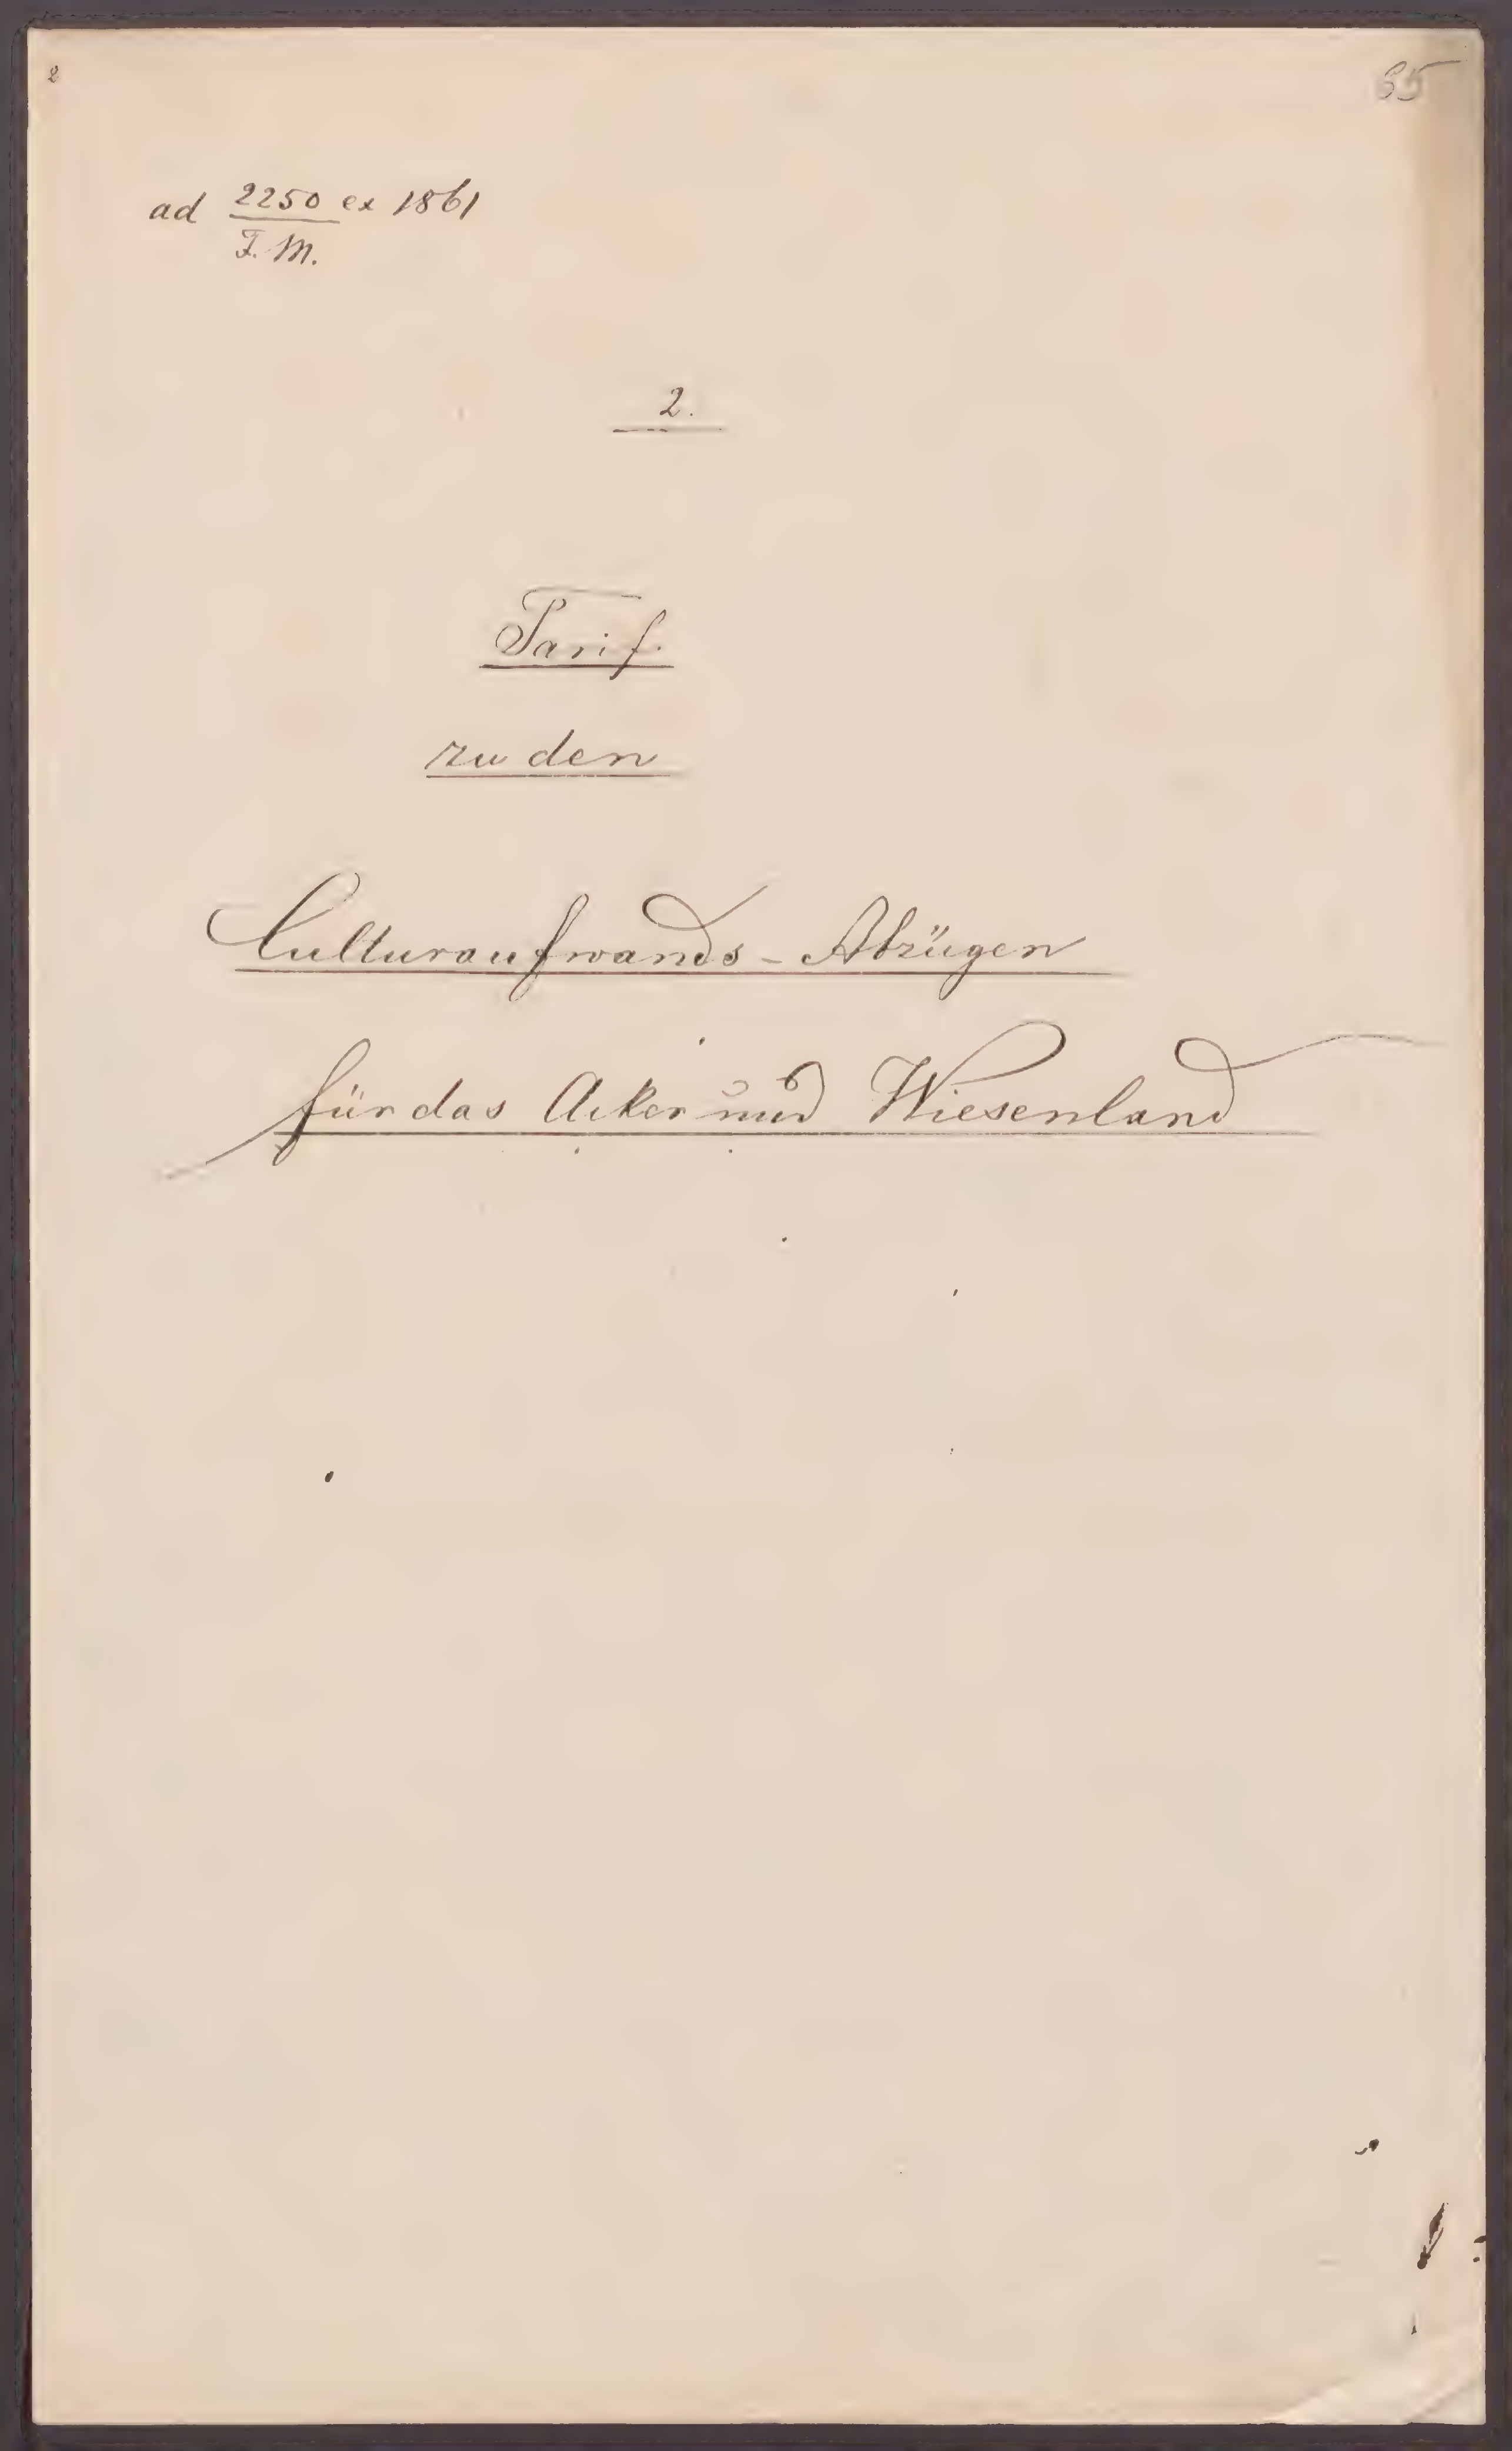 2
35
ad 2250 ex 1861
F. M.
2.
Tarif
zu den
Culturaufwands-Abzügen
für das Acker und Wiesenland